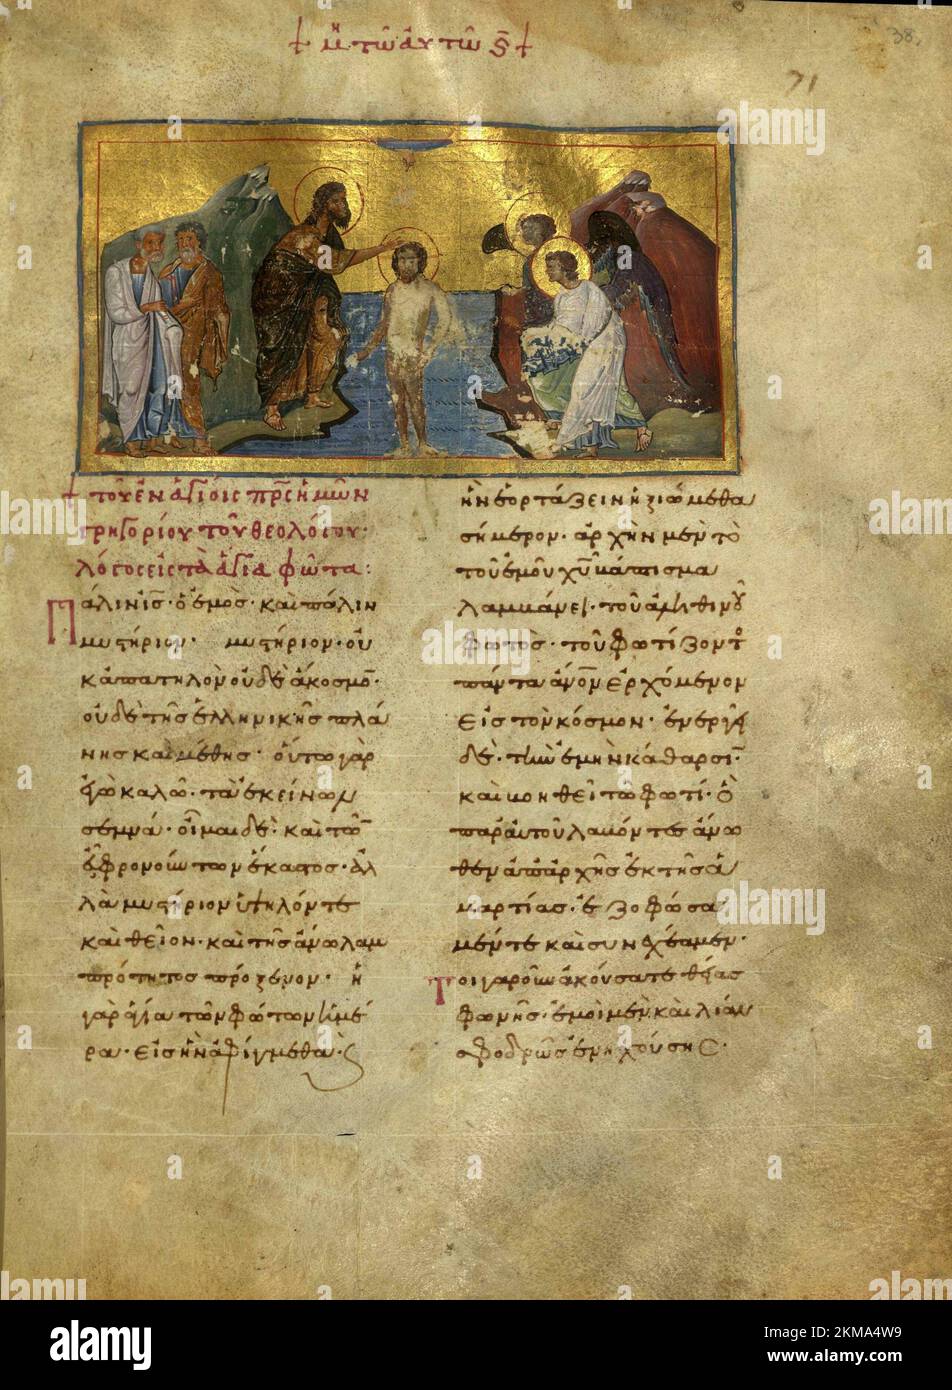 ☩ μ τῶ αὐτῶ ς ☩
38.
71
☩ τοῦ ἐν ἁγίοις πρς ἡμῶν
γρηγορίου τοῦ θεολόγου·
λόγος εἰς τὰ ἅγια φῶτα:
Πάλιν ις ὁ ἐμὸς· καὶ πάλιν
μυστήριον· μυστήριον· οὐ
κἀπατηλὸν οὐδὲ ἄκοσμον·
οὐδὲ τῆς ἑλληνικῆς πλά
νης καὶ μέθης· οὕτω γὰρ
ἐγὼ καλῶ· τὰ ἐκείνων
σεμνά· οἶμαι δὲ· καὶ τῶν
εὖ φρονούντων ἕκαστος· ἀλ
λὰ μυστήριον ὑψηλόν τε
καὶ θεῖον· καὶ τῆς ἄνω λαμ
πρότητος πρόξενον· ἡ
γὰρ ἁγία τῶν φώτων ἡμέ
ρα· εἰς ἣν ἀφίγμεθα·
ἣν ἑορτάζειν ἠξιώμεθα
σήμερον· ἀρχὴν μὲν τὸ
τοῦ ἐμοῦ χυ βάπτισμα
λαμβάνει· τοῦ ἀληθινοῦ
φωτὸς· τοῦ φωτίζοντος
πάντα ἄνον ἐρχόμενον
εἰς τὸν κόσμον· ἐνεργεῖ
δὲ· τὴν ἐμὴν κάθαρσιν·
καὶ βοηθεῖ τῶ φωτί· ὃ
παρ' αὐτοῦ λαβόντες ἄνω
θεν ἀπαρχῆς ἐκ τῆς ἁ
μαρτίας· ἐζοφώσα
μέν τε καὶ συνεχέαμεν·
Τοιγαροῦν ἀκούσατε θείας
φωνῆς· ἐμοὶ μὲν καὶ λίαν
σφοδρῶς ἐνηχούσης·
alamy
Image ID: 2KMA4W9
www.alamy.com